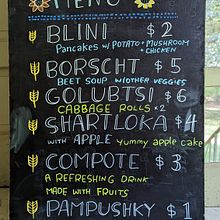 MENU
BLINI $2
Pancakes w/ POTATO • MUSHROOM
• CHICKEN
BORSCHT $5
BEET SOUP W/OTHER VEGGIES
GOLUBTSI $6
CABBAGE ROLLS x2
SHARTLOKA $4
WITH APPLE Yummy apple cake
COMPOTE $3
A REFRESHING DRINK
MADE WITH FRUITS
PAMPUSHKY $1